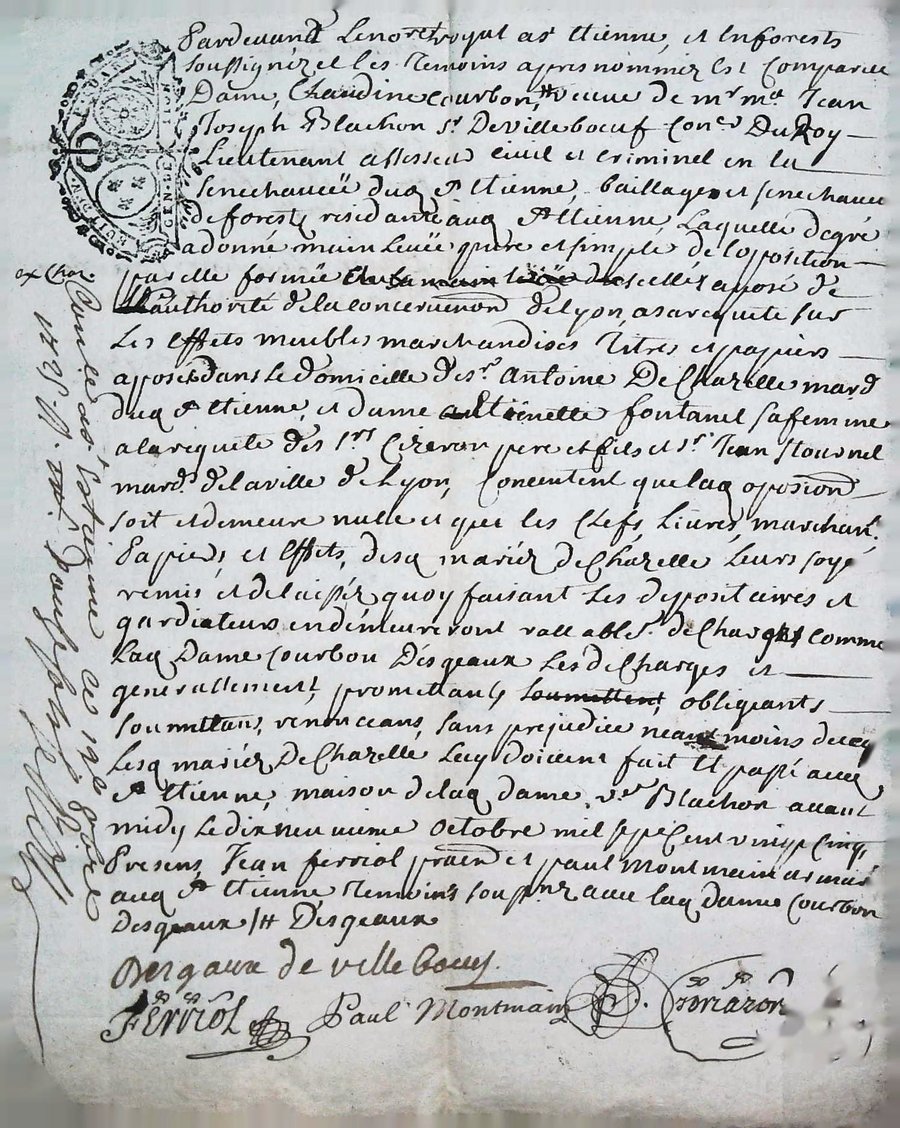 Pardevant Lenore royal a st Etienne, et enforests
soussigné et les Temoins apres nommez est Comparüe
Dame, Claudine courbon,# veuve de mr me Jean
Joseph Blachon sr Devilleboeuf Coner Du Roy
Lieutenant assesseur civil et criminel en la
Senechaucéë dud st Etienne, baillage et senechaucé
de forests residante aud st Etienne, Laquelle degré
adonné main levéë pure et simple de loposition
par elle forméë descellés aposé de
L'authorité de la conservaon de Lyon, asarequete sur
Les effets meubles marchandises Titres et papiers
aposés dans Le domicille de sr Antoine DeChazelle mard
dud st Etienne, et dame Antoinette fontanel sa femme
a la requete des srs Cizeron pere et fils et sr Jean
mards de la ville de Lyon, Concentent que lad oposion
soit et demeure nulle et que les Clefs, Livres, marchan.
Papiers, et effets, desd mariez de Chazelle Leurs soye
remis et delaissez quoy faisant Les depositaires et
gardiateurs en demeureront vallables de Charges comme
Lad Dame Courbon Desgeaux Les de Charges et
generallement, promettants obligeants
soumettans, renonceans, sans prejudice neantmoins de ce q
Lesd mariez DeChazelle Luy doivent fait et passé aud
st Etienne, maison de lad dame ve Blachon avant
midy Le dix neuvieme octobre mil sept Cent vingt Cinq,
Presens, Jean ferriol pratn et paul Montmain armur
aud st Etienne Temoins soussnez avec lad dame Courbon
Desgeaux /# Desgeaux
Desgaux de villeboeuf
FERRIOL Paul Montmain
Controllé a st Etienne ce 19e octobre
1725
GEN. DE LION